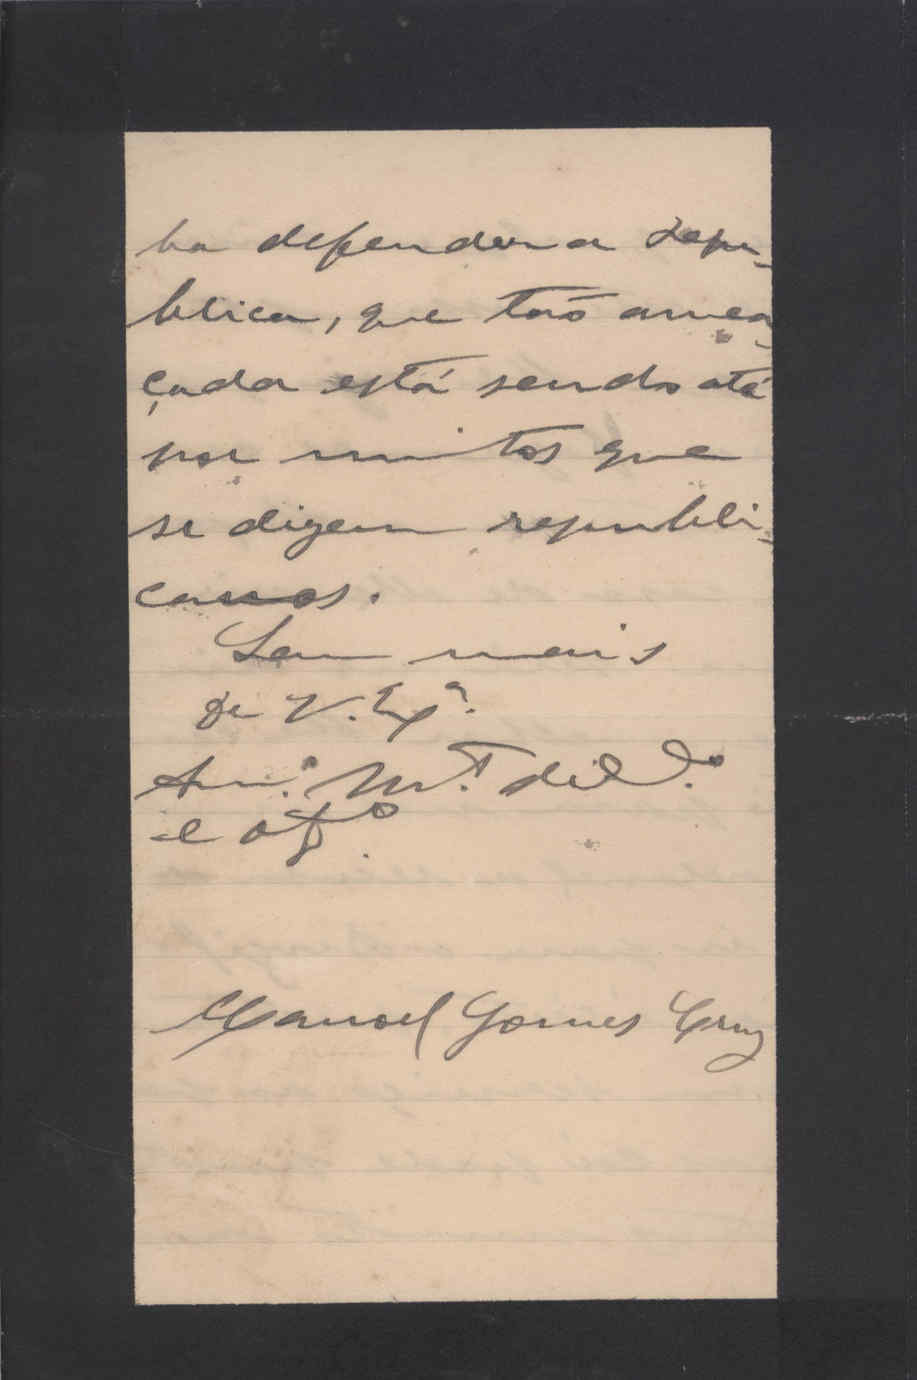 ha defender a Repu-
blica, que taõ amea-
çada está sendo até
por muitos que
se dizem republi-
canos.
Sou mais
De V. Exª.
Amº. Mt.
e obº
Manoel Gomes Cruz